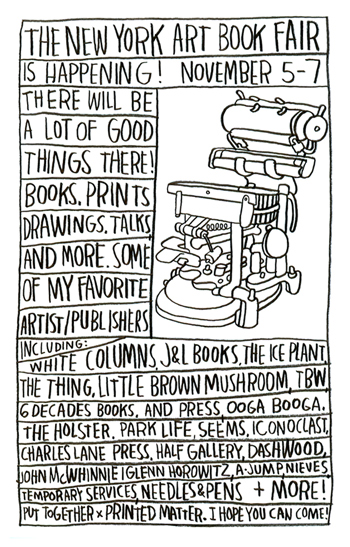 THE NEW YORK ART BOOK FAIR
IS HAPPENING! NOVEMBER 5-7
THERE WILL BE
A LOT OF GOOD
THINGS THERE!
BOOKS, PRINTS
DRAWINGS, TALKS,
AND MORE. SOME
OF MY FAVORITE
ARTIST/PUBLISHERS
INCLUDING:
WHITE COLUMNS, J&L BOOKS, THE ICE PLANT,
THE THING, LITTLE BROWN MUSHROOM, TBW,
6 DECADES BOOKS, AND PRESS, OOGA BOOGA,
THE HOLSTER, PARK LIFE, SEEMS, ICONOCLAST,
CHARLES LANE PRESS, HALF GALLERY, DASHWOOD,
JOHN McWHINNIE GLENN HOROWITZ, A-JUMP, NIEVES,
TEMPORARY SERVICES, NEEDLES & PENS + MORE!
PUT TOGETHER x PRINTED MATTER. I HOPE YOU CAN COME!